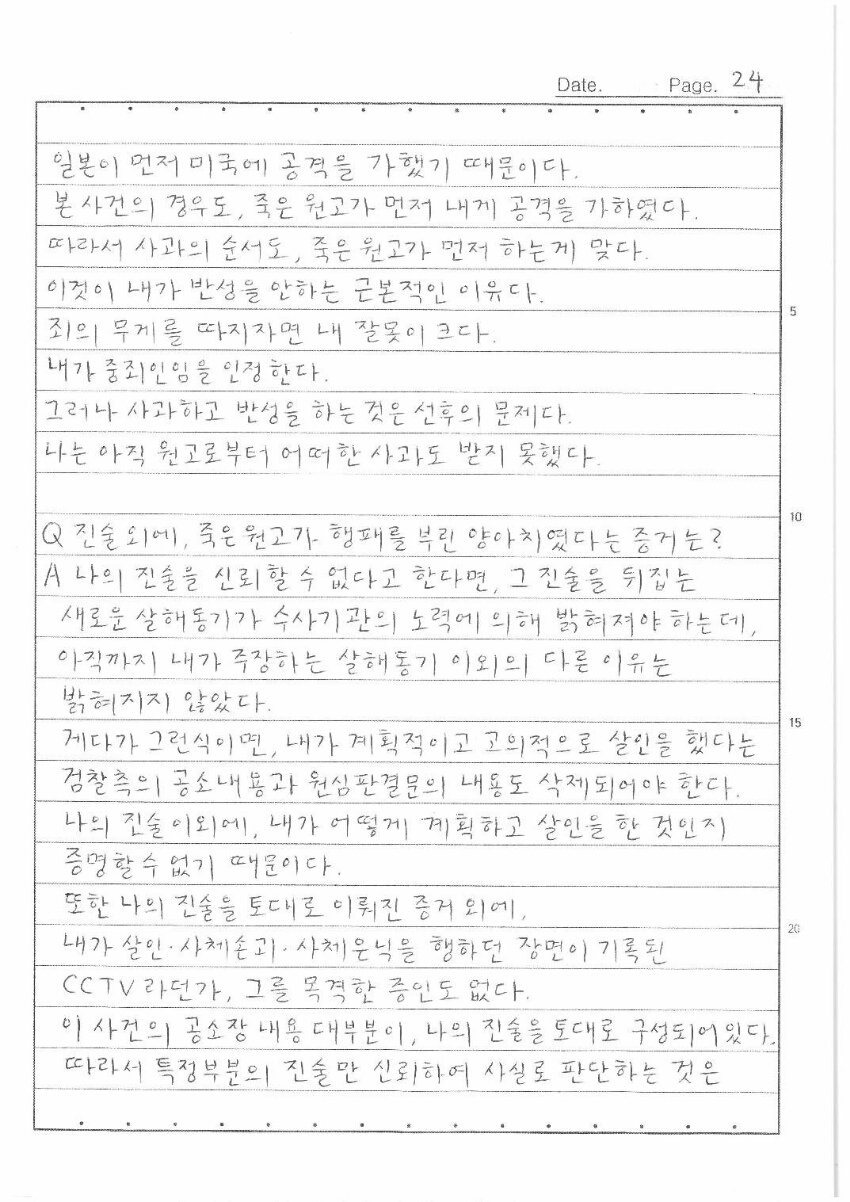 Date. Page. 24
일본이 먼저 미국에 공격을 가했기 때문이다.
본 사건의 경우도, 죽은 원고가 먼저 내게 공격을 가하였다.
따라서 사과의 순서도, 죽은 원고가 먼저 하는게 맞다.
이것이 내가 반성을 안하는 근본적인 이유다.
5
죄의 무게를 따지자면 내 잘못이 크다.
내가 중죄인임을 인정한다.
그러나 사과하고 반성을 하는 것은 선후의 문제다.
나는 아직 원고로부터 어떠한 사과도 받지 못했다.
10
Q 진술 외에, 죽은 원고가 행패를 부린 양아치였다는 증거는?
A 나의 진술을 신뢰할 수 없다고 한다면, 그 진술을 뒤집는
새로운 살해동기가 수사기관의 노력에 의해 밝혀져야 하는데,
아직까지 내가 주장하는 살해동기 이외의 다른 이유는
밝혀지지 않았다.
15
게다가 그런식이면, 내가 계획적이고 고의적으로 살인을 했다는
검찰측의 공소내용과 원심판결문의 내용도 삭제되어야 한다.
나의 진술 이외에, 내가 어떻게 계획하고 살인을 한 것인지
증명할 수 없기 때문이다.
또한 나의 진술을 토대로 이뤄진 증거 외에,
20
내가 살인·사체손괴·사체은닉을 행하던 장면이 기록된
CCTV 라던가, 그를 목격한 증인도 없다.
이 사건의 공소장 내용 대부분이, 나의 진술을 토대로 구성되어있다.
따라서 특정부분의 진술만 신뢰하여 사실로 판단하는 것은